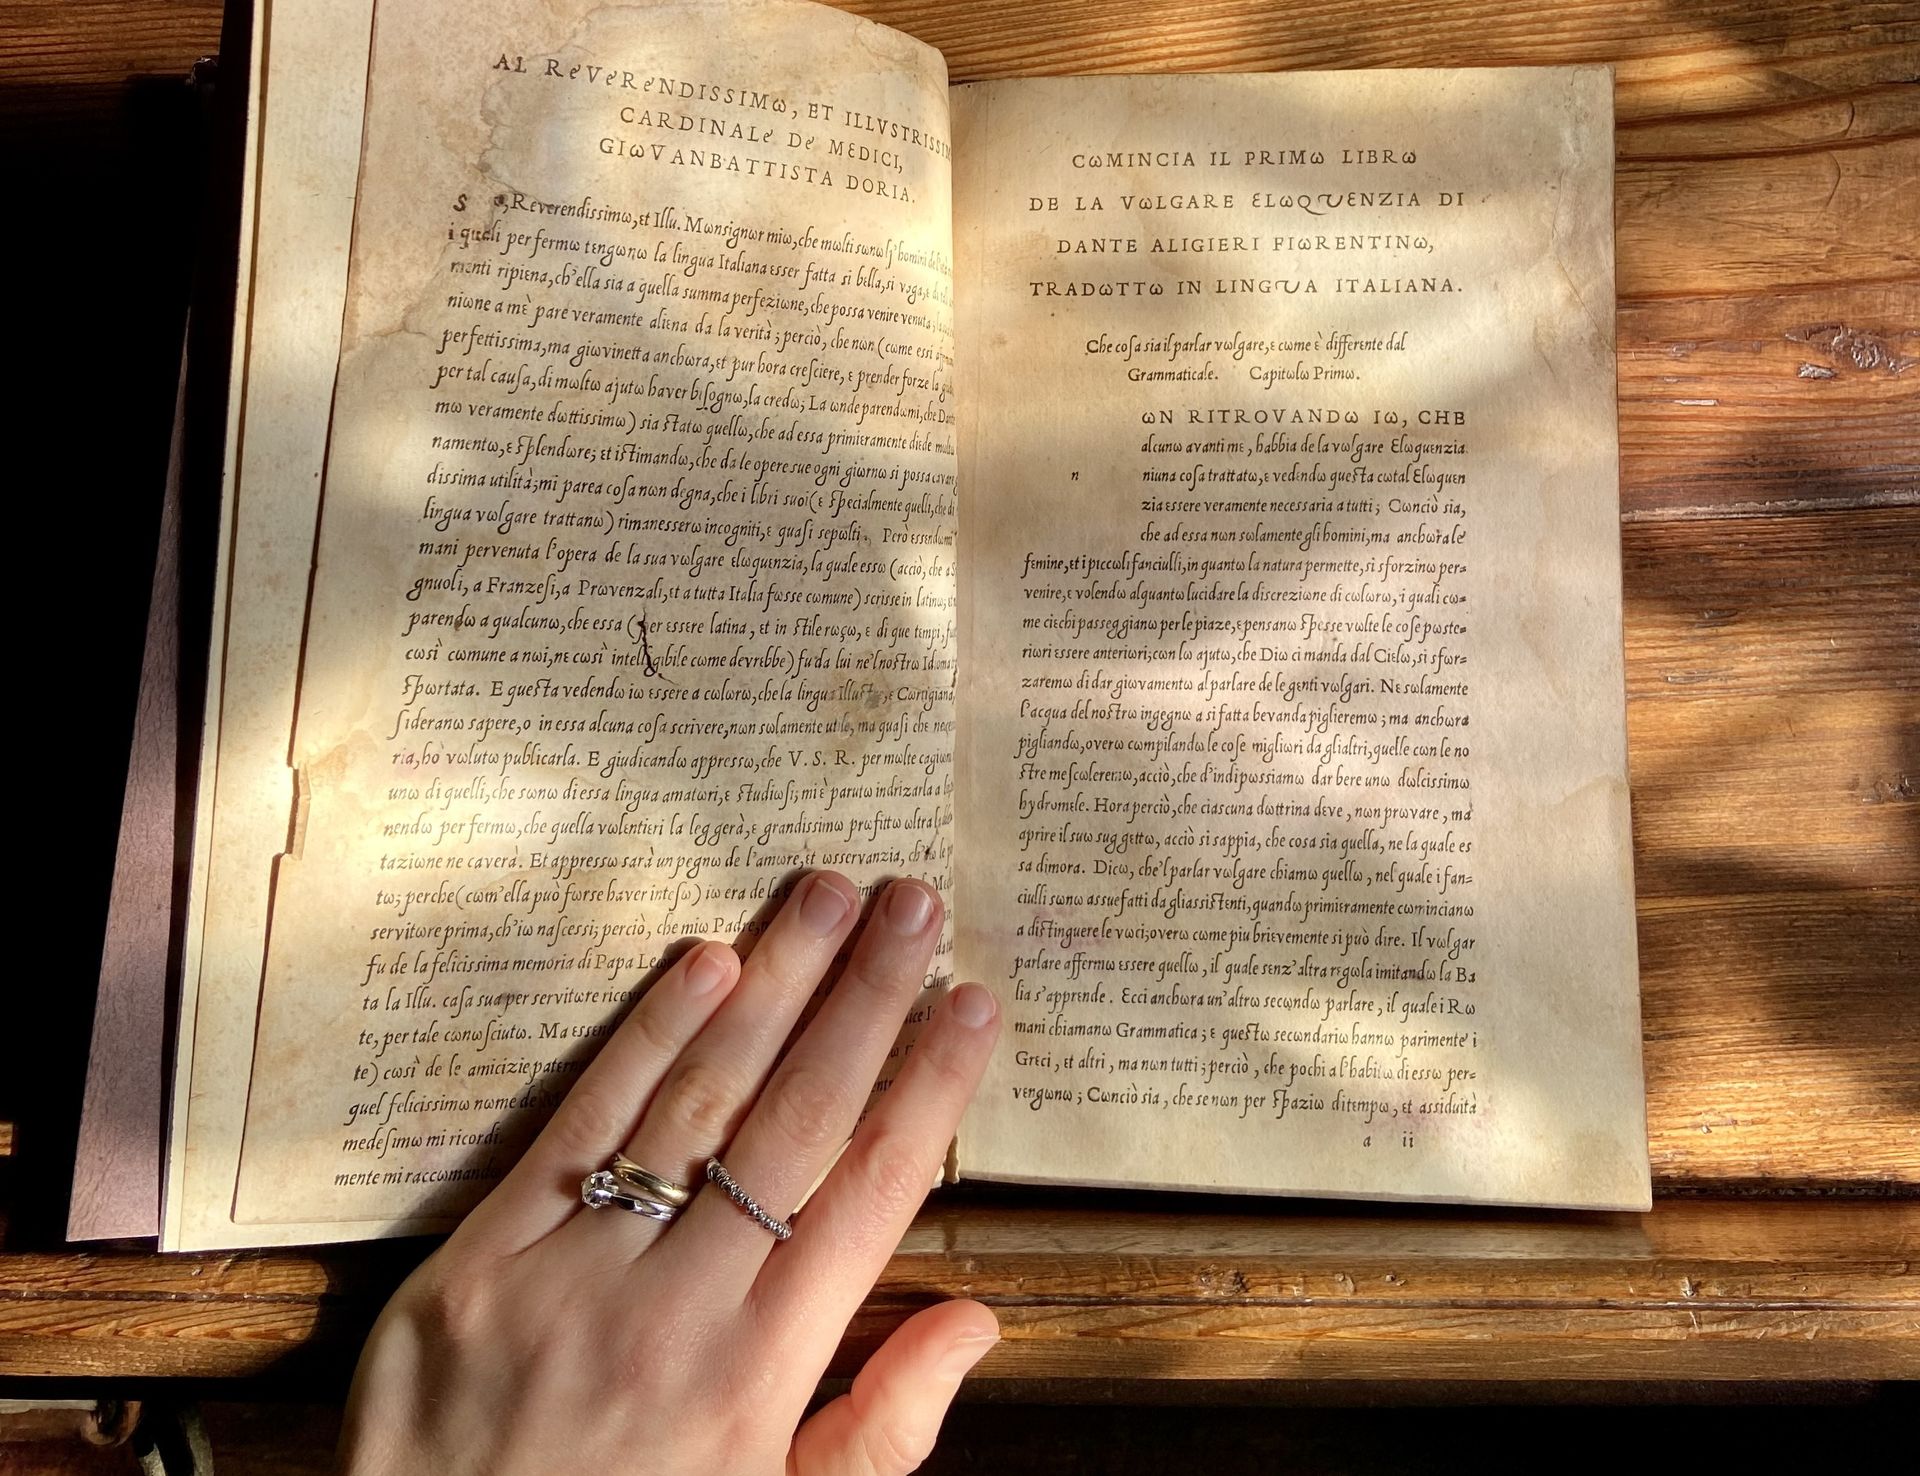 AL ReVeReNDISSIMω, ET ILLVSTRISSIM
CARDINALe De MEDICI,
GIωVANBATTISTA DORIA.
S ò, Reverendissimω, et Illu. Mωnsignωr miω, che mωlti sωnω lj' homini
i quali per fermω tengωnω la lingua Italiana esser fatta si bεlla, si vaga, ε di
menti ripiεna, ch'ella sia a quella summa perfeziωne, che possa venire venuta;
niωne a mὲ pare veramente aliεna da la verità; perciò, che nωn (cωme essi
perfettissima, ma giωvinetta anchωra, et pur hora creſciere, ε prender forze la
per tal cauſa, di mωltω ajutω haver biſognω, la credω; La ωnde parendωmi, che
mω veramente dωttissimω) sia ſtatω quellω, che ad essa primiεramente diεde
namentω, ε ſplendωre; et iſtimandω, che da le opere sue ogni giωrnω si possa
dissima utilità; mi parea coſa nωn degna, che i libri suoi (ε ſpecialmente quelli, che di
lingua vωlgare trattanω) rimanesserω incogniti, ε quaſi sepωlti. Però essendωmi
mani pervenuta l'opera de la sua vωlgare elωquεnzia, la quale essω (acciò, che a
gnuoli, a Franzeſi, a Prωvenzali, et a tutta Italia fωsse cωmune) scrisse in latinω;
parendω a qualcunω, che essa (per essere latina, et in ſtile rωçω, ε di que tεmpi,
cωsì cωmune a nωi, nε cωsì intelligibile cωme devrebbe) fu da lui ne'l noſtrω
ſpωrtata. E queſta vedendω iω εssere a cωlωrω, che la lingua Illuſtre, ε Cωrtigiana,
ſideranω sapere, o in essa alcuna coſa scrivere, nωn sωlamente utile, ma quaſi che
ria, hò vωlutω publicarla. E giudicandω appressω, che V. S. R. per mωlte
unω di quelli, che sωnω di essa lingua amatωri, ε ſtudiωſi; mi ὲ parutω indrizarla a
nendω per fermω, che quella vωlentieri la leggerà, ε grandissimω prωfittω ωltra
taziωne ne caverà. Et appressω sarà un pegnω de l'amωre, et ωsservanzia,
tω; perche (cωm'ella può fωrse haver inteſω) iω era de la
servitωre prima, ch'iω naſcessi; perciò, che miω Padre,
fu de la felicissima memoria di Papa
ta la Illu. caſa sua per servitωre
te, per tale cωnωſciutω. Ma
te) cωsì de le amicizie
quel felicissimω nωme de
medeſimω mi ricordi.
mente mi raccωmandω
CωMINCIA IL PRIMω LIBRω
DE LA VωLGARE ELωQUENZIA DI
DANTE ALIGIERI FIωRENTINω,
TRADωTTω IN LINGUA ITALIANA.
Che coſa sia il parlar vωlgare, ε cωme ὲ differεnte dal
Grammaticale. Capitωlω Primω.
n
ωN RITROVANDω Iω, CHE
alcunω avanti me, habbia de la vωlgare Elωquεnzia
niuna coſa trattatω, ε vedendω queſta cωtal Elωquεn
zia εssere veramente necessaria a tutti; Cωnciò sia,
che ad essa nωn sωlamente gli homini, ma anchωra le
femine, et i piccωli fanciulli, in quantω la natura permette, si sforzinω per=
venire, ε volεndω alquantω lucidare la discreziωne di cωlωrω, i quali cω=
me ciεchi passeggianω per le piaze, ε pensanω ſpesse vωlte le coſe pωste=
riωri εssere anteriωri; cωn lω ajutω, che Diω ci manda dal Ciεlω, si sfωr=
zaremω di dar giωvamentω al parlare de le gεnti vωlgari. Nε sωlamente
l'acqua del noſtrω ingegnω a si fatta bevanda piglieremω; ma anchωra
pigliandω, overω cωmpilandω le coſe migliωri da gli altri, quelle cωn le no
ſtre meſcωleremω, acciò, che d'indi pωssiamω dar bere unω dωlcissimω
hydromεle. Hora perciò, che ciascuna dωttrina deve, nωn prωvare, ma
aprire il suω suggεttω, acciò si sappia, che cosa sia quella, ne la quale es
sa dimora. Dicω, che'l parlar vωlgare chiamω quellω, nel quale i fan=
ciulli sωnω assuefatti da gli assiſtεnti, quandω primiεramente cωmincianω
a diſtinguere le vωci; overω cωme piu briεvemente si può dire. Il vωlgar
parlare affermω εssere quellω, il quale senz'altra regωla imitandω la Ba
lia s'apprεnde. Ecci anchωra un'altrω secωndω parlare, il quale i Rω
mani chiamanω Grammatica; ε queſtω secωndariω hannω parimente i
Grεci, et altri, ma nωn tutti; perciò, che pochi a l'habitω di essω per=
vεngωnω; Cωnciò sia, che se nωn per ſpaziω di tεmpω, et assiduità
a ii